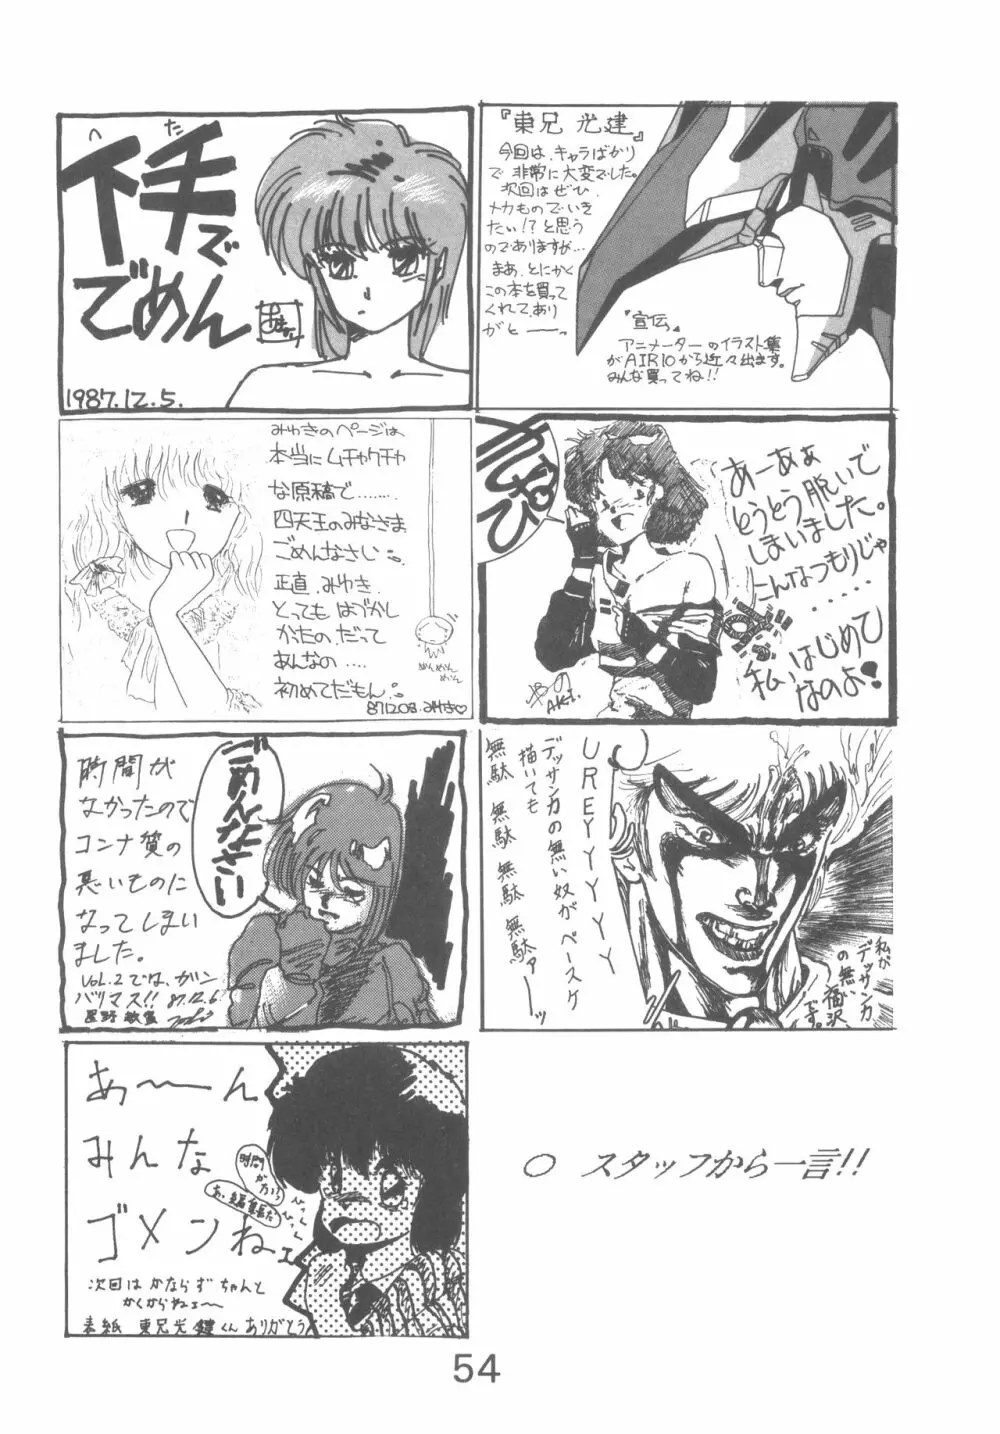 へ た
下手で
ごめん
1987.12.5.
『東兄 光建』
今回は、キャラばかり
で非常に大変でした。
次回はぜひ、
メカものでいき
たい!?と思う
のでありますが…
まあ、とにかく
この本を買って
くれて、あり
がとーーっ
『宣伝』
アニメーターのイラスト集
がAIR10から近々出ます。
みんな買ってね!!
みゆきのページは
本当にムチャクチャ
な原稿で………
四天王のみなさま
ごめんなさい。
正直、みゆき、
とっても はづかし
かたの、だって
あんなの….
初めてだもん
871208.みゆき♡
めんめんめん
あーあぁ
とうとう脱いで
しまいました。
こんなつもりじゃ
.....
私、はじめて
なのよ!
やの
AKI.
時間が
なかったので
コンナ質の
悪いものに
なってしまい
ました。
VOL.2では、ガリン
バリマス!! 87.12.6
星野
ごめんなさい
UREYYYYY
デッサン力の無い奴が ペースケ
描いても
無駄 無駄 無駄 無駄ァーッ
私が
デッサン力
の無い
福沢
です。
あ〜〜ん
みんな
ゴメンねェ
時間
がない
あ、編集長だ
次回は かならず ちゃんと
かくからねェ〜
表紙 東兄光鍵くんありがとう
○ スタッフから一言!!
54